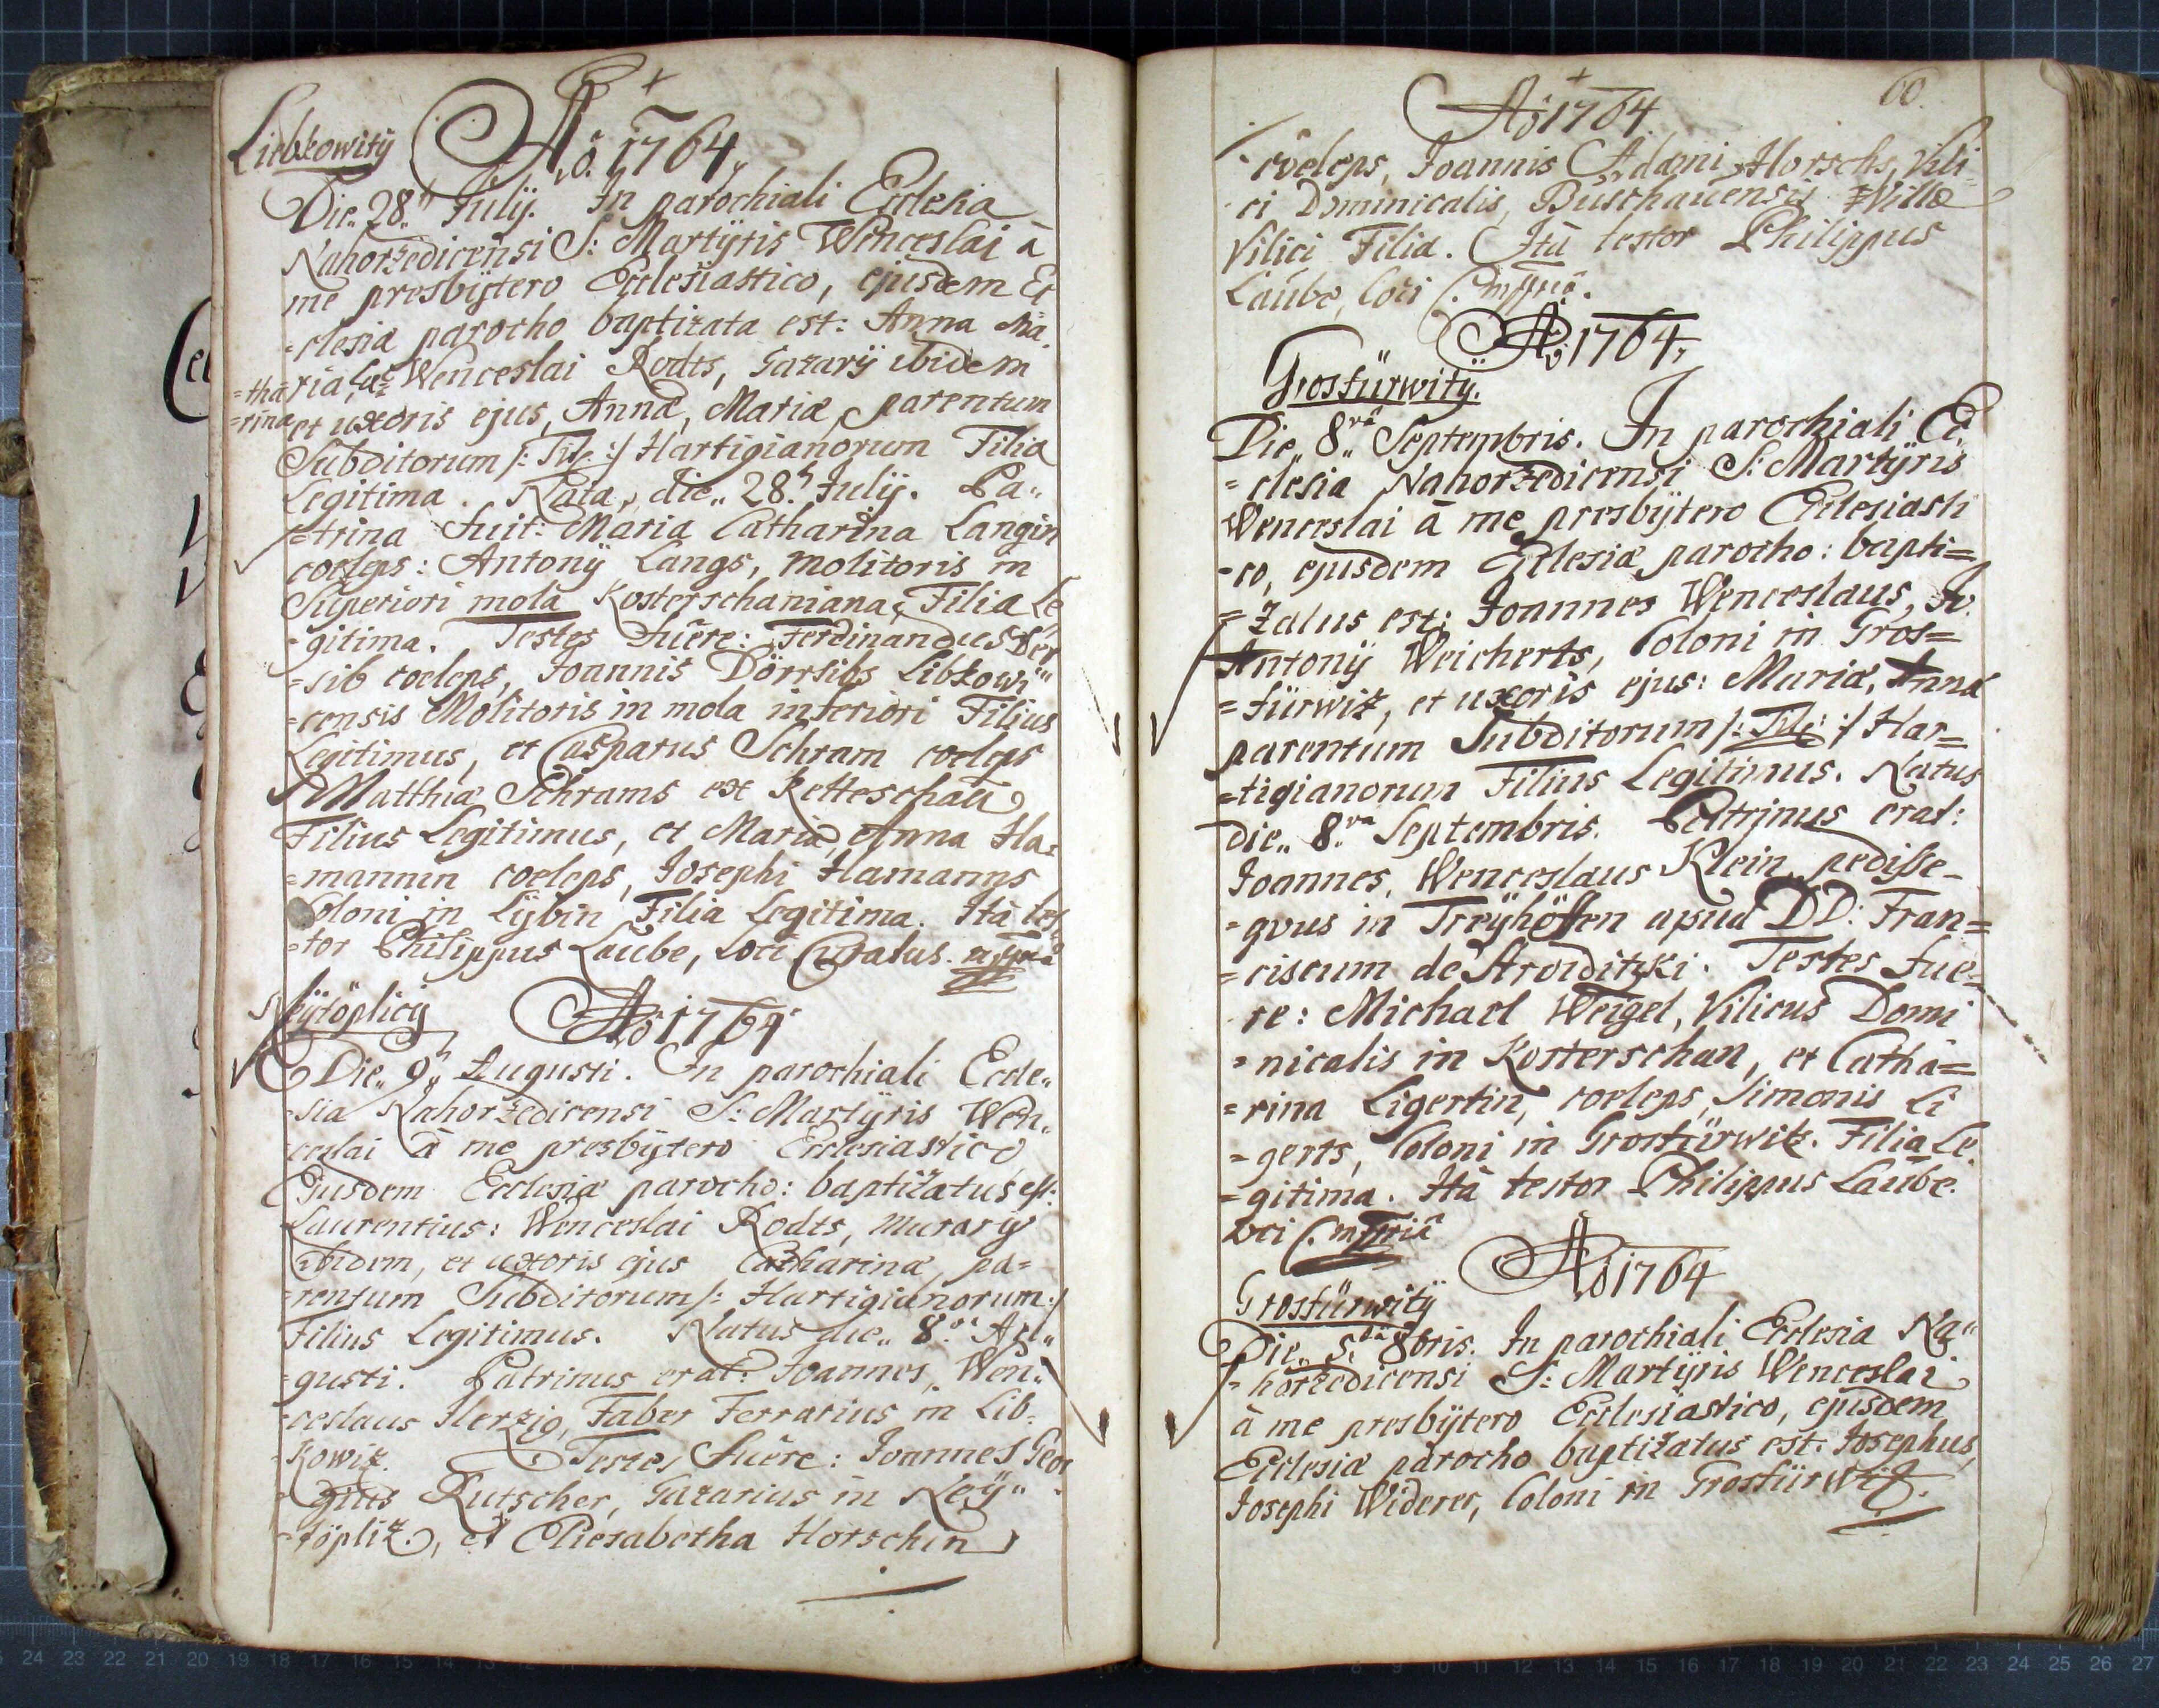 Liebkowitÿ Aõ. 1764.
Die. 28.ª Julij. In parochiali Ecclesia
Nahorzedicensi S: Martÿris Wenceslai à
me presbÿtero Ecclesiastico, ejusdem Ec
=clesiæ parocho baptizata est: Anna Ma
=tharia, Ca= Wenceslai Rodts, Gazarÿ ibidem
=rina et uxoris ejus, Annæ, Mariæ, parentum
Subditorum /: Tit. :/ Hartigianorum Filia
Legitima. Nata, die.. 28.ª Julij. Pa..
=trina fuit: Maria Catharina Langin
coeleps: Antonÿ Langs, molitoris in
Superiori mola Kosterschaniana, Filia Le
=gitima. Testes fuêre: Ferdinandus Dër
=sib coeleps, Joannis Dörrsibs Libkowi
=censis Molitoris in mola inferiori Filius
Legitimus, et Casparus Schram coeleps
Matthiæ Schrams ex Ketteschaü
Filius Legitimus, et Maria, Anna Ha=
=mannin coeleps, Josephi Hamanns
Coloni in Lÿbin Filia Legitima. Ità tes
=tor Philippus Laübe, Loci Curatus. mppria
Neÿtöplicÿ Aõ 1764
Die.. 9.ª Augusti. In parochiali Eccle..
=sia Nahorzedicensi S: Martÿris Wen..
ceslai à me presbÿtero Ecclesiastico
Ejusdem Ecclesiæ parocho: baptizatus est:
Laurentius: Wenceslai Rodts, Murarÿ
ibidem, et uxoris ejus Catharinæ, pa=
=rentum Subditorum /: Hartigianorum :/
Filius Legitimus. Natus die.. 8.va Au..
=gusti. Patrinus erat: Joannes, Wen..
=ceslaus Herzig, Faber Ferrarius in Lib=
=kowiz. Testes fuêre: Joannes Geor
=gius Kutscher, Gazarius in Neÿ..
=töpliz, et Eliesabetha Horschin
60.
Aõ 1764
coeleps, Joannis Adami Horschs, Vili
=ci Dominicalis, Büschauensis Villæ
Vilici Filia. Ità testor Philippus
Laübe, loci C. mppriâ.
Aõ 1764,
Grosfürwitÿ.
Die.. 8.va Septembris. In parochiali Ec
=clesia Nahorzedicensi S: Martÿris
Wenceslai à me presbÿtero Ecclesiasti
=co, ejusdem Eclesiæ parocho: bapti=
=zatus est: Joannes Wenceslaus,
Antonÿ Weicherts, Coloni in Gros=
=fürwiz, et uxoris ejus: Mariæ, Annæ
parentum Subditorum /: Tit: :/ Har=
=tigianorum Filius Legitimus. Natus
die.. 8.va Septembris. Patrinus erat:
Joannes, Wenceslaus Klein, pedisse-
=qvus in Treÿhöffen apud DD: Fran=
=ciscum de Stroiditzki. Testes fue=
re: Michael Weigel, Vilicus Domi
=nicalis in Kosterschan, et Catha=
=rina Ligertin, coeleps, Simonis Li
=gerts, Coloni in Grosfürwitz. Filia Le
=gitima. Ità testor Philippus Laübe.
loci C. mppriâ
Aõ 1764
Grosfürwitÿ
Die.. 5.ta 8bris. In parochiali Ecclesia Na..
=horzedicensi S: Martÿris Wenceslai
à me presbÿtero Ecclesiastico, ejusdem
Ecclesiæ parocho baptizatus est: Josephus,
Josephi Widerer, Coloni in Grosfürwiz.